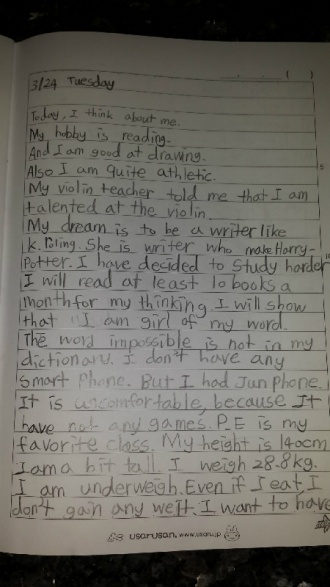 3/24 Tuesday
( )
Today, I think about me.
My hobby is reading.
And I am good at drawing.
Also I am quite athletic.
My violin teacher told me that I am
talented at the violin.
My dream is to be a writer like
k. Roling. She is writer who make Harry-
Potter. I have decided to study harder
I will read at least 10 books a
month for my thinking. I will show
that "I am girl of my word.
The word impossible is not in my
dictionary. I don't have any
Smart Phone. But I had Jun phone.
It is uncomfortable, because It
have not any games. P.E is my
favorite class. My height is 140cm
I am a bit tall. I weigh 28.8kg.
I am underweigh. Even if I eat, I
don't gain any weit. I want to have
usarusan. www.usaru.jp